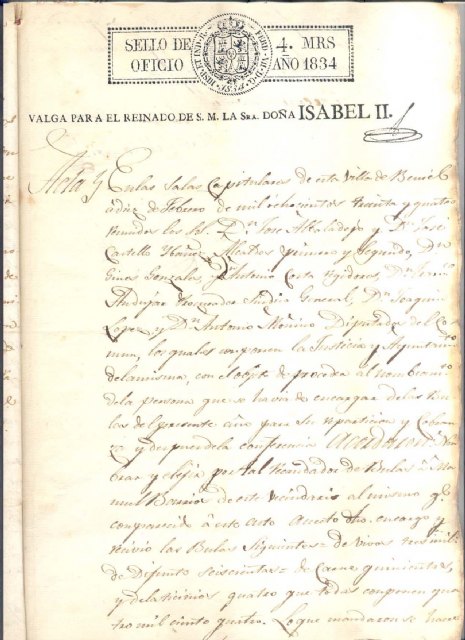 SELLO DE 4. MRS
OFICIO AÑO 1834
VALGA PARA EL REINADO DE S. M. LA SRA. DOÑA ISABEL II.
Acta
En las Salas Capitulares de esta Villa de
a diez de Febrero de mil ochocientos treinta y quatro
reunidos los Dn. Jose y Dn. Jose
Castillo Alcaldes primero y Segundo, Dn
Gines Gonzalez, y Antonio Regidores, Dn
Andujar Sindico General, Dn. Joaquin
Lopez y Dn. Antonio Diputados del Co
mun, los quales componen la Justicia y Ayuntamto
de la misma, con el objeto de proceder al nombramto
de la persona que se havia de encargar de las Bu
las del presente año para su reparticion y Cobran
y despues de la conferencia
brar y por tal de Bulas a Ma
nuel de este al mismo qe.
comparecio á este acto dho. encargo y
las Bulas Siguientes = De vivos tres mil =
de Difunto seiscientas = de Carne quinientas,
y de lacticinios quatro que todas componen qua
tro mil ciento quatro. Lo que mandaron se